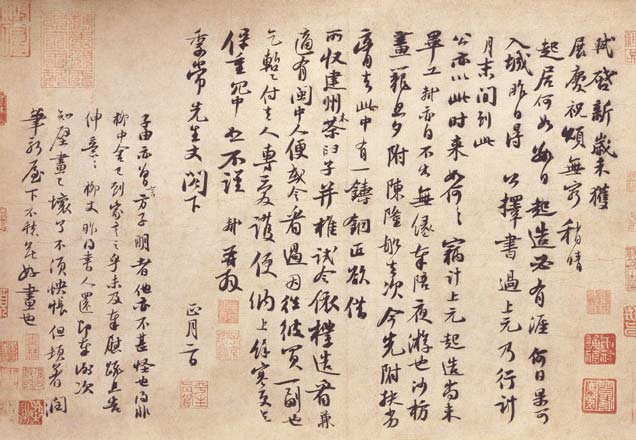 軾啟新歲未獲
展慶祝頌無窮稍晴
起居何如數日起造必有涯何日果可
入城昨日得公擇書過上元乃行計
月末間到此
公亦以此時來如何〻竊計上元起造尚未
畢工軾亦自不出無緣奉陪夜游也沙枋
畫籠旦夕附陳隆船去次今先附扶劣
膏去此中有一鑄銅匠欲借
所收建州木茶臼子并椎試令依樣造看兼
適有閩中人便或令看過因往彼買一副也
乞暫付去人專愛護便納上餘寒更乞
保重冗中恕不謹軾再拜
季常先生丈閣下
正月二日
子由亦曾言方子明者他亦不甚怪也得非
柳中舍已到家言之乎未及奉慰疏且告
伸意〻柳丈昨得書人還即奉謝次
知壁畫已壞了不須怏悵但頓著潤
筆新屋下不愁無好畫也